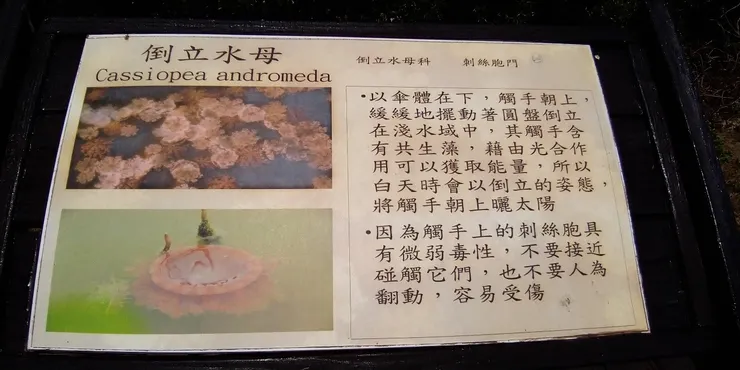 倒立水母
Cassiopea andromeda
倒立水母科 刺絲胞門
•以傘體在下，觸手朝上，
緩緩地擺動著圓盤倒立
在淺水域中，其觸手含
有共生藻，藉由光合作
用可以獲取能量，所以
白天時會以倒立的姿態，
將觸手朝上曬太陽
•因為觸手上的刺絲胞具
有微弱毒性，不要接近
碰觸它們，也不要人為
翻動，容易受傷